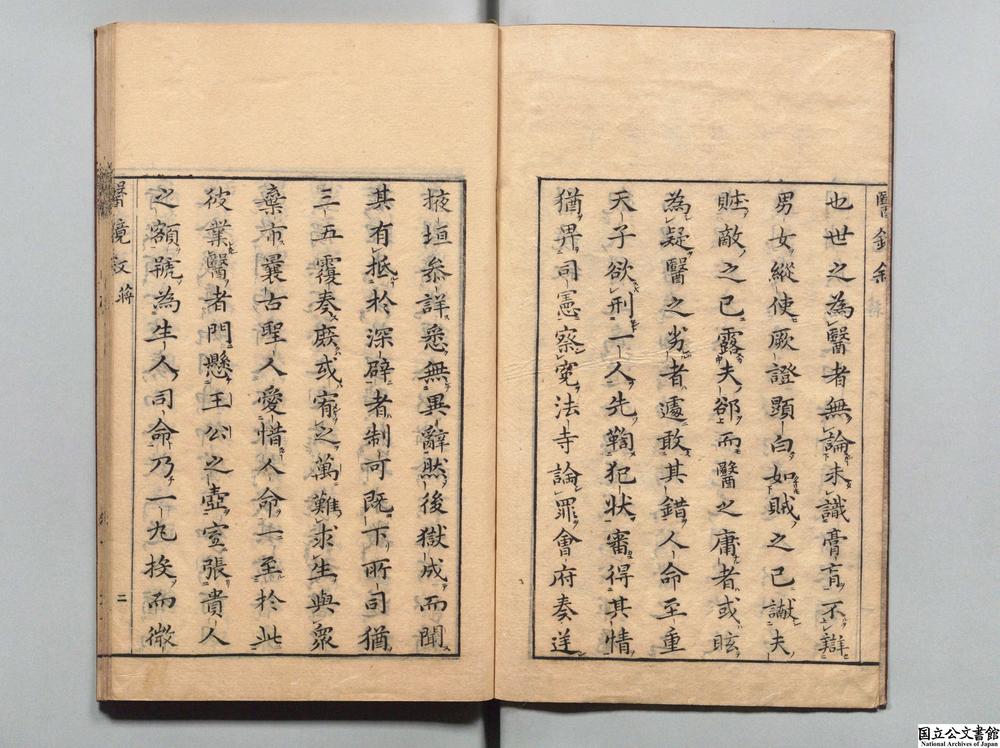 也世之為醫者無論未識膏肓不辯
男女縱使厥證顯白如賊之已讞夫
賍敵之已露夫郤而醫之庸者或眩
為疑醫之劣者遽敢其錯人命至重
天子欲刑一人先鞫犯状審得其情
猶畀司憲察寃法寺論罪會府奏送
掖垣叅詳悉無異辭然後獄成而聞
其有抵於深辟者制可既下所司猶
三五覆奏蔽或宥之萬難求生與衆
棄市曩古聖人愛惜人命一至於此
彼業醫者門懸王公之壺室張貴人
之額號為生人司命乃一九投而微
醫鏡叙蔣
二
国立公文書館
National Archives of Japan